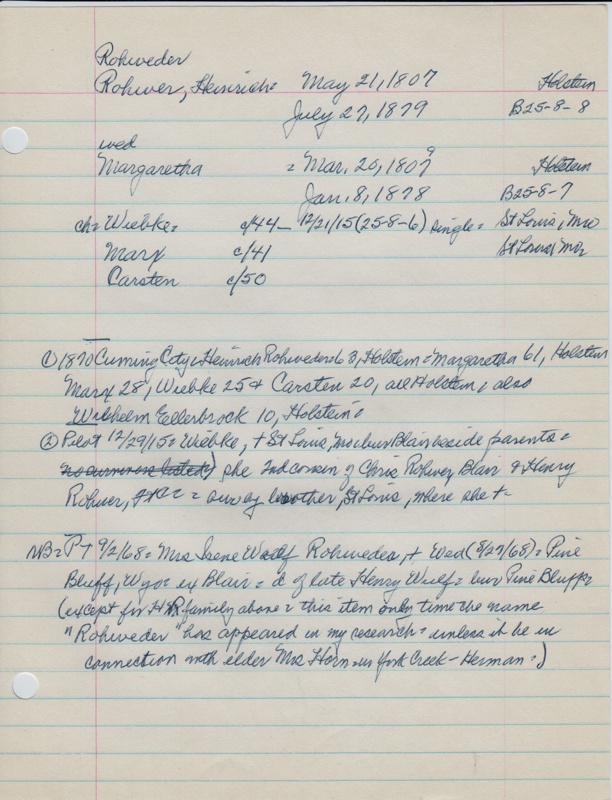 Rohweder
Rohwer, Heinrich = May 21, 1807 Holstein
July 27, 1879 B25-8-8
wed
Margaretha = Mar. 20, 1809 Holstein
Jan. 8, 1878 B25-8-7
ch = Wiebke = c/44 - 12/21/15 (25-8-6) single = St Louis, Mo
Marx c/41 St Louis, Mo
Carsten c/50
① 1870 Cuming City = Heinrich Rohweder 63, Holstein = Margaretha 61, Holstein
Marx 28, Wiebke 25 + Carsten 20, all Holstein, also
Wilhelm Ellerbrock 10, Holstein =
② Pilot 12/29/15 = Wiebke, + St Louis, Mo = bur Blair beside parents =
no survivors listed) she 2nd cousin of Chris Rohwer, Blair & Henry
Rohwer, = surv by brother, St Louis, where she + -
NB = PT 9/2/68 = Mrs Irene Wulf Rohweder, + Wed (8/27/68) = Pine
Bluff, Wyo = ex Blair = d of late Henry Wulf = bur Pine Bluffs
(except for HR family above = this item only time the name
"Rohweder" has appeared in my research = unless it be in
connection with elder Mrs Horn = in York Creek - Herman =)